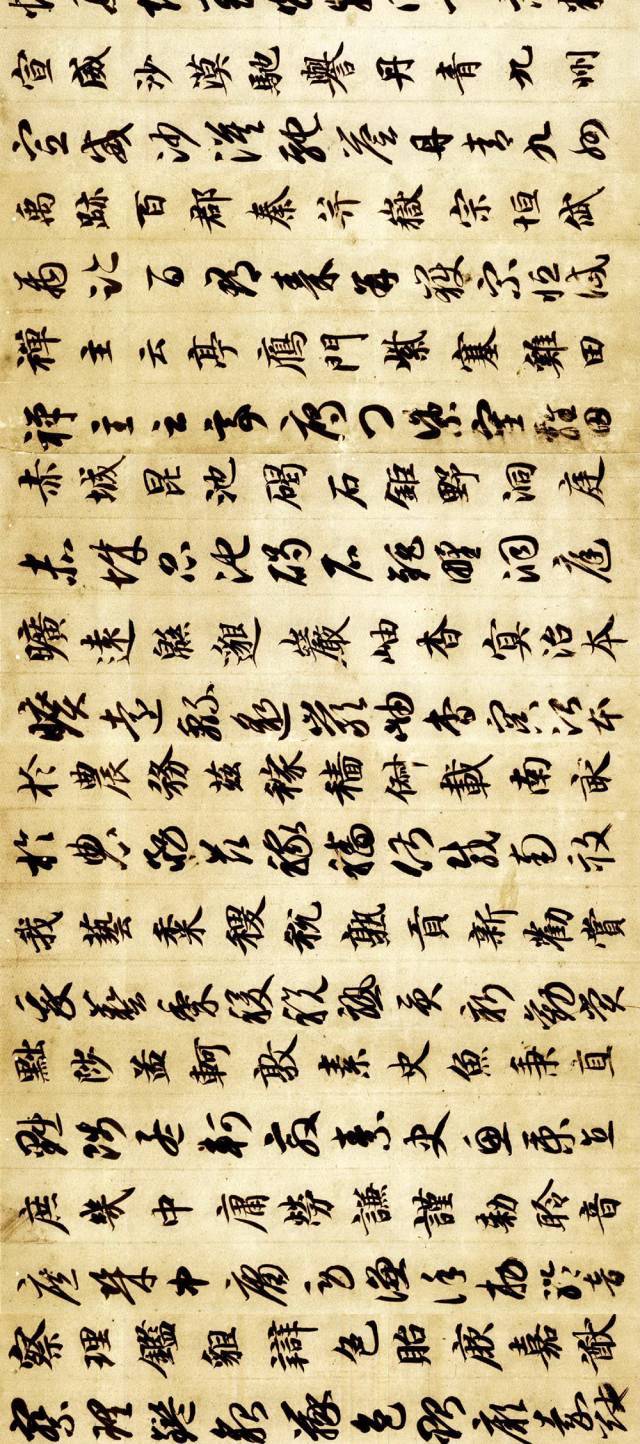 宣威沙漠馳譽丹青九州
宣威沙漠馳譽丹青九州
禹跡百郡秦并嶽宗恒岱
禹跡百郡秦并嶽宗恒岱
禪主云亭鴈門紫塞雞田
禪主云亭鴈門紫塞雞田
赤城昆池碣石鉅野洞庭
赤城昆池碣石鉅野洞庭
曠遠緜邈巖岫杳冥治本
曠遠緜邈巖岫杳冥治本
於農務茲稼穡俶載南畝
於農務茲稼穡俶載南畝
我藝黍稷稅熟貢新勸賞
我藝黍稷稅熟貢新勸賞
黜陟孟軻敦素史魚秉直
黜陟孟軻敦素史魚秉直
庶幾中庸勞謙謹勅聆音
庶幾中庸勞謙謹勅聆音
察理鑑貌辯色貽厥嘉猷
察理鑑貌辯色貽厥嘉猷